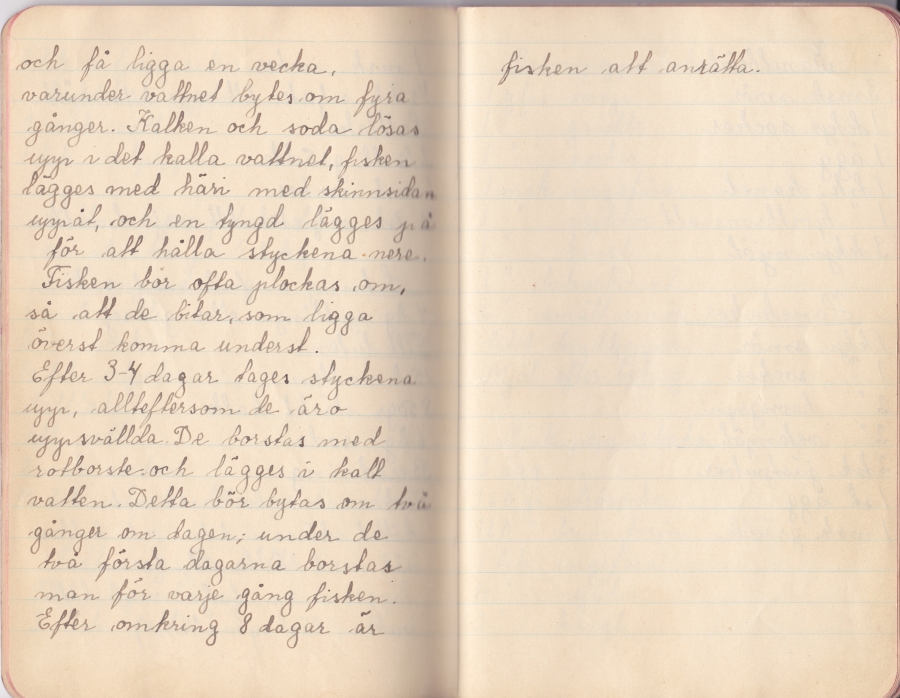 och få ligga en vecka,
varunder vattnet bytes om fyra
gånger. Kalken och soda lösas
upp i det kalla vattnet, fisken
lägges med häri med skinnsidan
uppåt, och en tyngd lägges på
för att hålla styckena nere.
Fisken bör ofta plockas om,
så att de bitar, som ligga
överst komma underst.
Efter 3-4 dagar tages styckena
upp, allteftersom de äro
uppsvällda. De borstas med
rotborste och lägges i kallt
vatten. Detta bör bytas om två
gånger om dagen; under de
två första dagarna borstas
man för varje gång fisken.
Efter omkring 8 dagar är
fisken att anrätta.